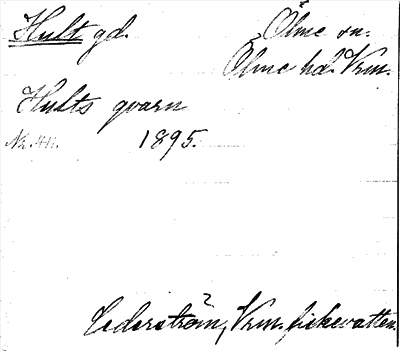 Hult gd. Ölme sn.
Ölme hd. Vrm.
Hults qvarn
1895.
Cederström, Vrm. fiskevatten.